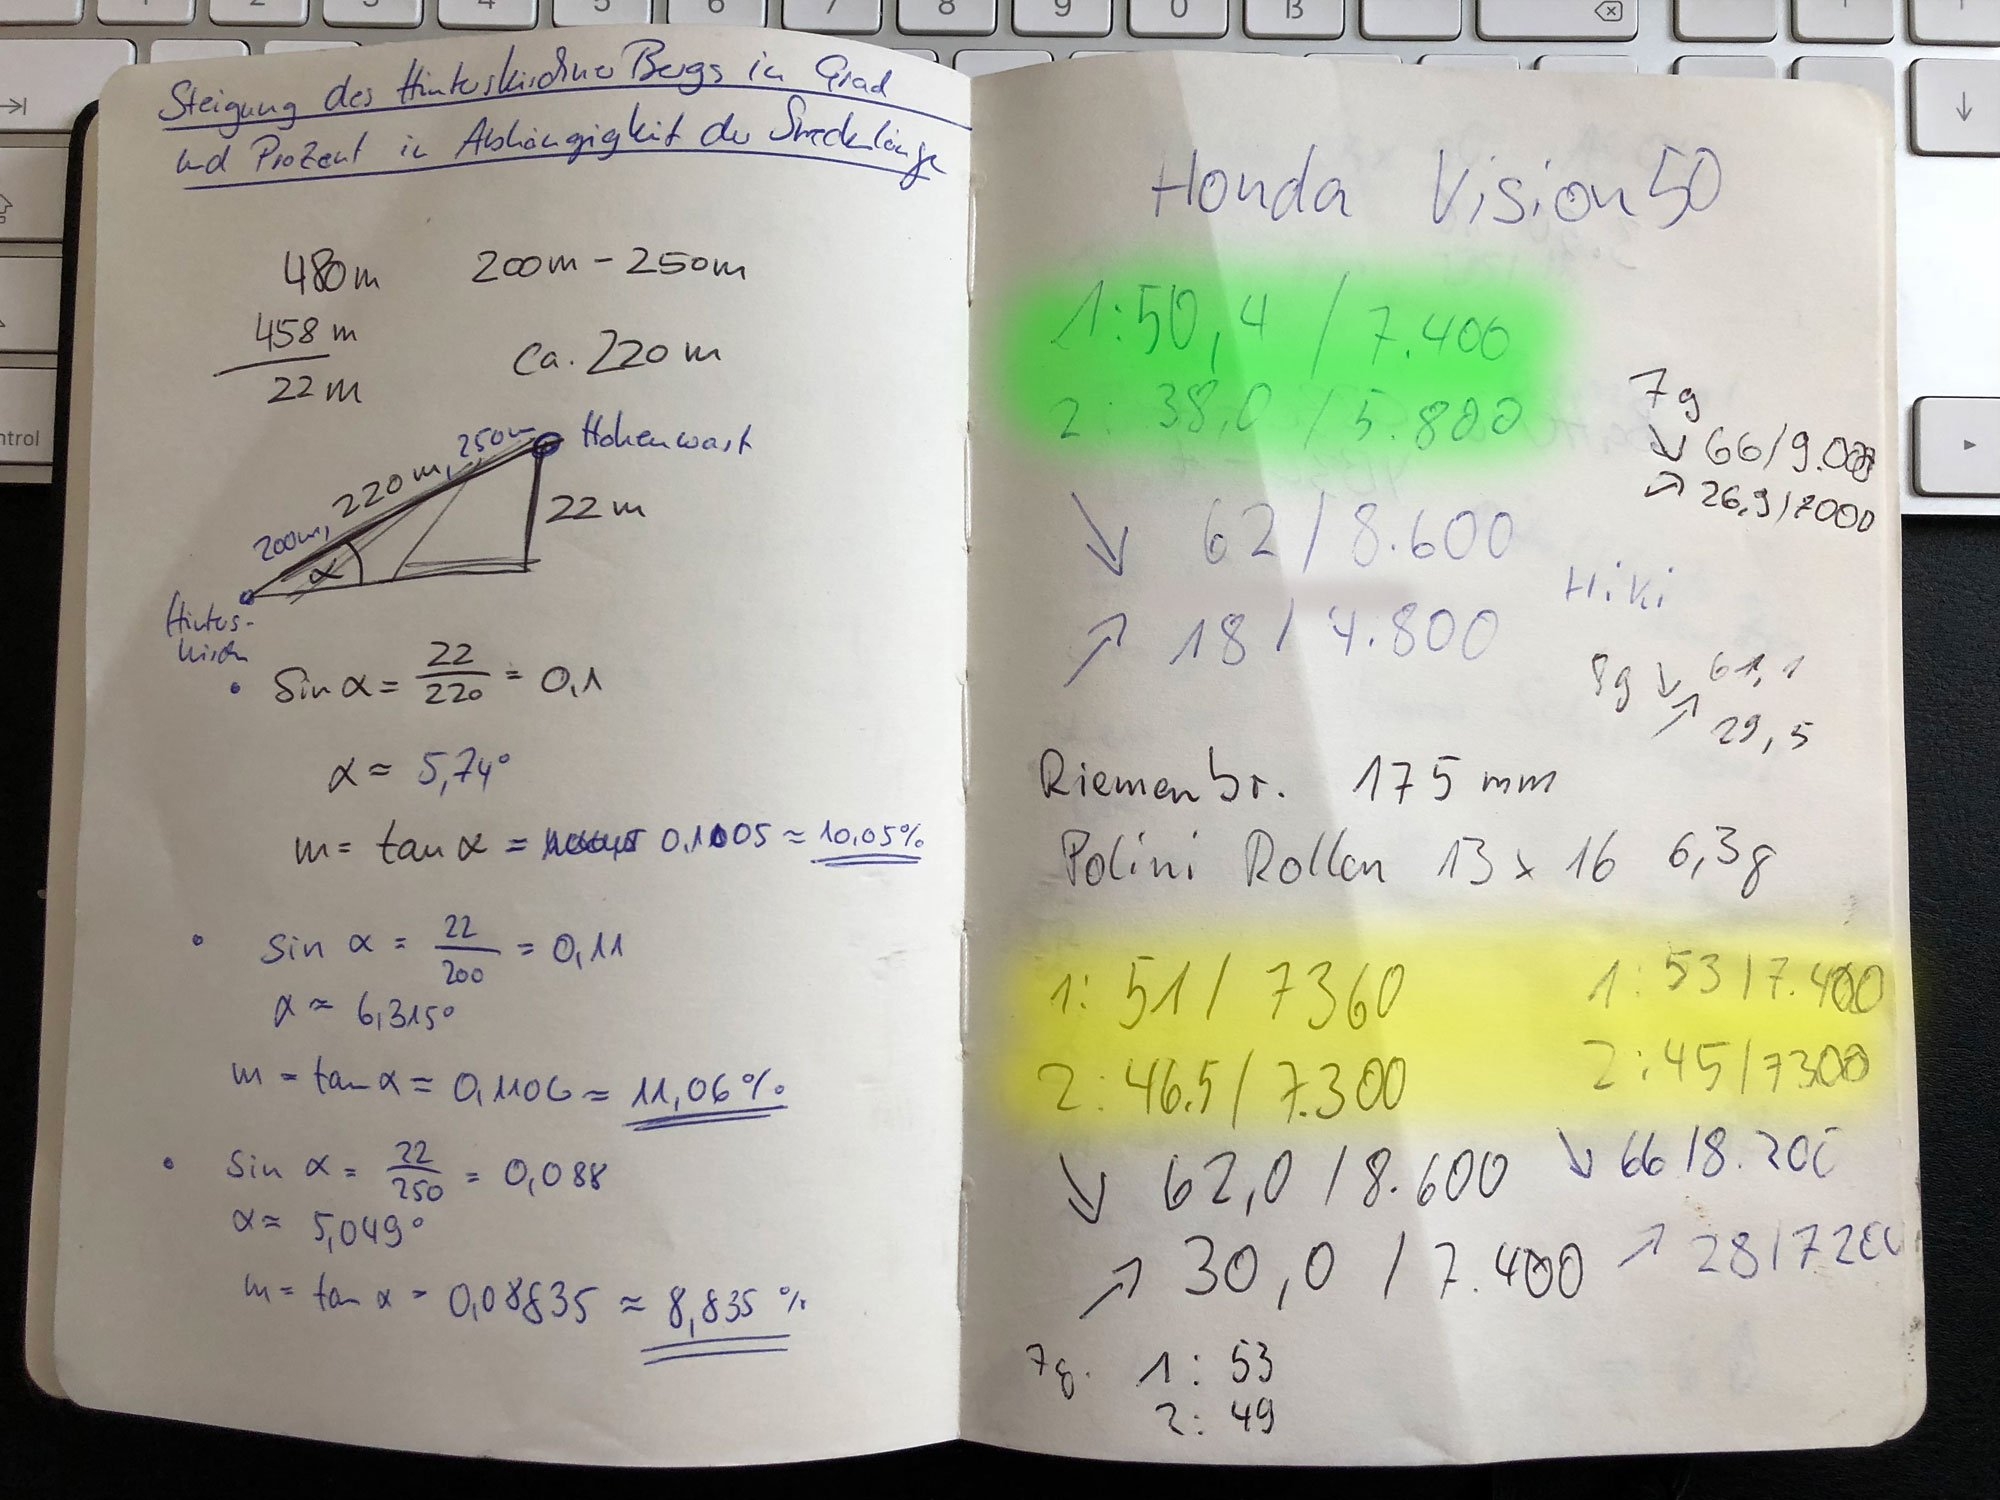 Steigung des Hinterskirchner Bergs in Grad
und Prozent in Abhängigkeit der Streckenlänge
480m 200m - 250m
458m
22m
ca. 220m
Hohenwart
200m, 220m, 250m
22m
α
Hinters-
kirchn
• sin α = 22/220 = 0,1
α ≈ 5,74°
m = tan α = 0,1005 ≈ 10,05%
• sin α = 22/200 = 0,11
α ≈ 6,315°
m = tan α = 0,1106 ≈ 11,06%
• sin α = 22/250 = 0,088
α ≈ 5,049°
m = tan α = 0,08835 ≈ 8,835%
Honda Vision 50
1: 50,4 / 7.400
2: 38,0 / 5.800
↘ 62 / 8.600
↗ 18 / 4.800
7g
↘ 66 / 9.000
↗ 26,9 / 7000
Hiki
8g ↘ 61,1
↗ 29,5
Riemenbr. 175 mm
Polini Rollen 13 x 16 6,3g
1: 51 / 7360
2: 46.5 / 7.300
↘ 62,0 / 8.600
↗ 30,0 / 7.400
1: 53 / 7.400
2: 45 / 7300
↘ 66 / 8.200
↗ 28 / 7200
7g. 1: 53
2: 49
1 2 3 4 5 6 7 8 9 0 ß
ntrol